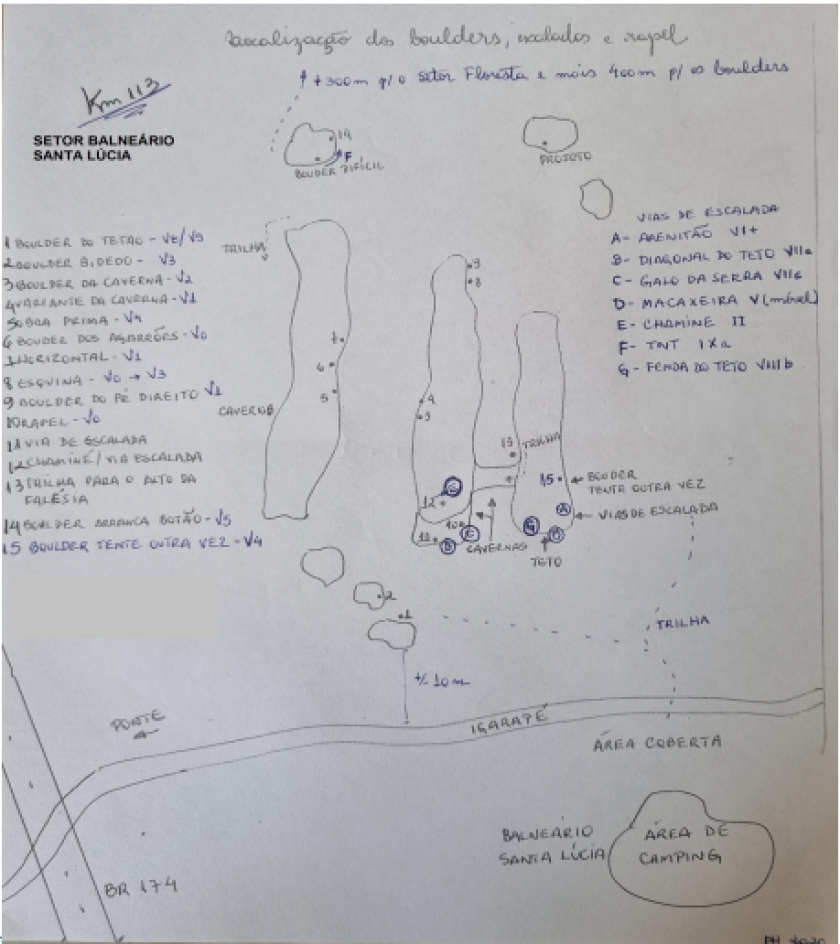 Localização dos boulders, escaladas e rapel
↑ + 300m p/ o setor Floresta e mais 400m p/ os boulders
Km 113
SETOR BALNEÁRIO
SANTA LÚCIA
14
F
BOUDER DIFÍCIL
PROJETO
1 BOULDER DO TETÃO - V8/V9
2 BOULDER BIDEDO - V3
3 BOULDER DA CAVERNA - V2
4 VARIANTE DA CAVERNA - V1
5 BOBA PRIMA - V4
6 BOUDER DOS AGARRÕES - V0
7 HORIZONTAL - V1
8 ESQUINA - V0 → V3
9 BOULDER DO PÉ DIREITO V1
10 RAPEL - V0
11 VIA DE ESCALADA
12 CHAMINÉ / VIA ESCALADA
13 TRILHA PARA O ALTO DA
FALÉSIA
14 BOULDER ARRANCA BOTÃO - V5
15 BOULDER TENTE OUTRA VEZ - V4
VIAS DE ESCALADA
A - ARENITÃO VI+
B - DIAGONAL DO TETO VIIa
C - GALO DA SERRA VIIc
D - MACAXEIRA V (móvel)
E - CHAMINE II
F - TNT IXa
G - FENDA DO TETO VIIIb
TRILHA
7
6
5
CAVERNA
9
8
4
3
13 TRILHA
12
10
11
CAVERNAS
15
BOUDER
TENTE OUTRA VEZ
A
VIAS DE ESCALADA
G
TETO
2
1
TRILHA
+/- 10m
PONTE
IGARAPÉ
ÁREA COBERTA
BALNEÁRIO
SANTA LÚCIA
ÁREA DE
CAMPING
BR 174